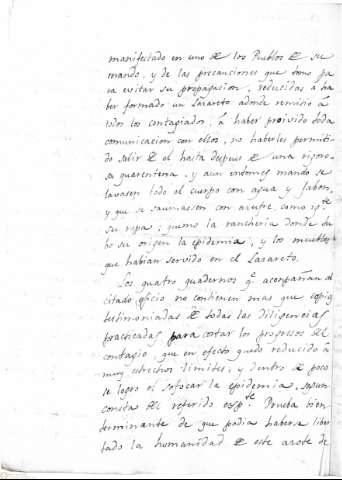 manifestado en uno de los Pueblos de su
mando, y de las precauciones que tomo pa
ra evitar su propagasion, reducidas á ha
ber formado un Lazareto adonde remitio á
todos los contagiados, á haber proivido toda
comunicacion con ellos, no haberles permiti
do salir de el hasta despues de una rigoro
sa quarentena, y aun entonces mando se
lavasen todo el cuerpo con agua y Jabon,
y que se saumassen con azufre, como ig.te
su ropa; quemo la rancheria donde tu
bo su origen la epidemia, y los muebles
que habian servido en el Lazareto.
Los quatro quadernos q.e acompañan al
citado oficio no contienen mas que copias
testimoniadas de todas las diligencias
practicadas para cortar los progresos del
contagio, que en efecto quedo reducido á
muy estrechos limites, y dentro de poco
se logro el sofocar la epidemia, segun
consta del referido exp.te Prueba bien
terminante de que podia haberse liber
tado la humanidad de este azote de